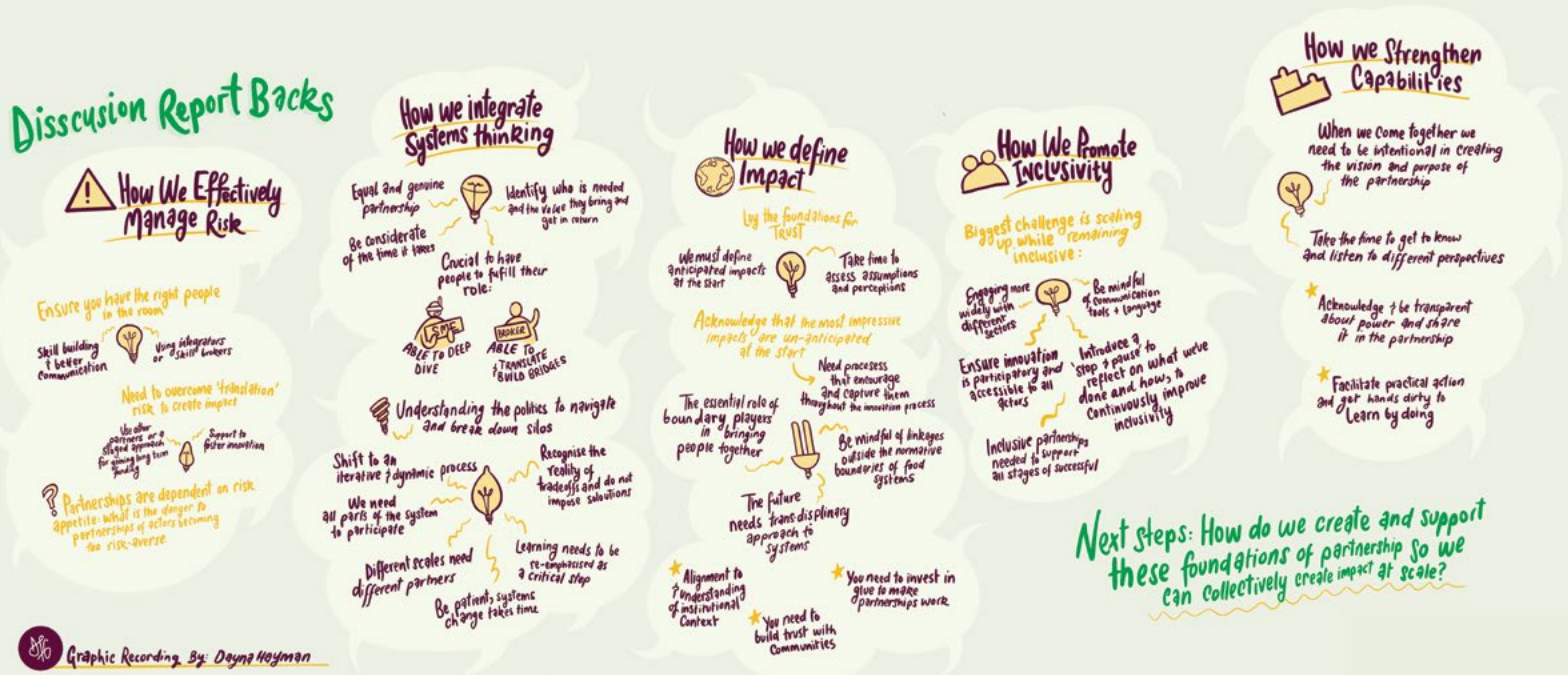 Disscusion Report Backs
How We Effectively
Manage Risk
Ensure you have the right people
in the room
Skill building
& better
Communication
Using integrators
or skill brokers
Need to overcome 'translation'
risk to create impact
Use other
partners or a
staged approach
for gaining long term
funding
Support to
foster innovation
? Partnerships are dependent on risk
appetite: what is the danger to
partnerships of actors becoming
too risk-averse.
How we integrate
Systems thinking
Equal and genuine
partnership
Identify who is needed
and the value they bring and
get in return
Be considerate
of the time it takes
Crucial to have
people to fufill their
role:
SME
ABLE TO DEEP
DIVE
BROKER
ABLE TO
TRANSLATE
& BUILD BRIDGES
Understanding the politics to navigate
and break down silos
Shift to an
iterative & dynamic process
Recognise the
reality of
tradeoffs and do not
impose soloutions
We need
all parts of the system
to participate
Different scales need
different partners
Learning needs to be
re-emphasised as
a critical step
Be patient, systems
change takes time
How we define
Impact
Lay the foundations for
TRUST
We must define
anticipated impacts
at the start
Take time to
assess assumptions
and perceptions
Acknowledge that the most impressive
impacts are un-anticipated
at the start
Need procesess
that encourage
and capture them
throughout the innovation process
The essential role of
boundary players
in bringing
people together
Be mindful of linkages
outside the normative
boundaries of food
systems
The future
needs trans-displinary
approach to
systems
Alignment to
& understanding
of institutional
Context
You need to
build trust with
Communities
You need to invest in
glue to make
partnerships work
How We Promote
Inclusivity
Biggest challenge is scaling
up while remaining
inclusive:
Engaging more
widely with
different
sectors
Be mindful
of communication
tools + language
Ensure innovation
is participatory and
accessible to all
actors
Introduce a
'stop & pause' to
reflect on what we've
done and how, to
Continuously improve
inclusivity
Inclusive partnerships
needed to support
all stages of successful
How we Strengthen
Capabilities
When we come together we
need to be intentional in creating
the vision and purpose of
the partnership
Take the time to get to know
and listen to different perspectives
Acknowledge & be transparent
about power and share
it in the partnership
Facilitate practical action
and get hands dirty to
Learn by doing
Next steps: How do we create and support
these foundations of partnership so we
can collectively create impact at scale?
Graphic Recording By: Dayna Hayman